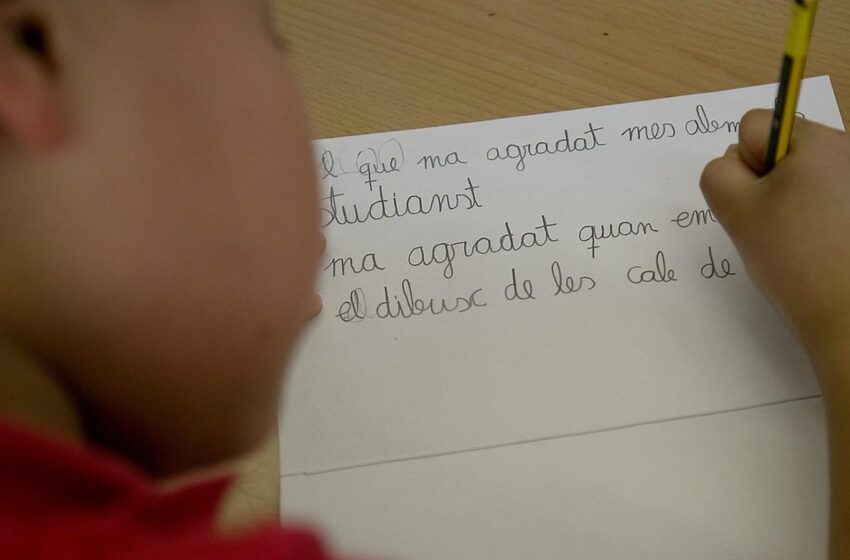 el que ma agradat mes
studianst
ma agradat quan em
el dibusc de les cale de